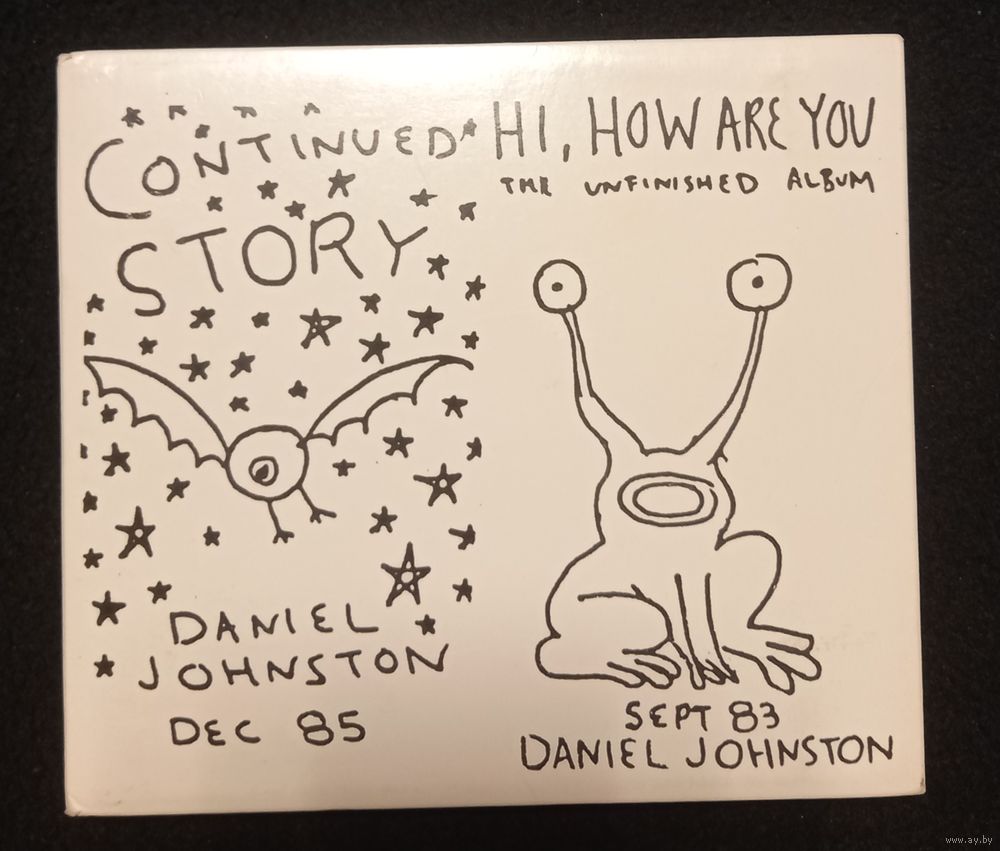 CONTINUED
STORY
DANIEL
JOHNSTON
DEC 85
HI, HOW ARE YOU
THE UNFINISHED ALBUM
SEPT 83
DANIEL JOHNSTON
www.ay.by